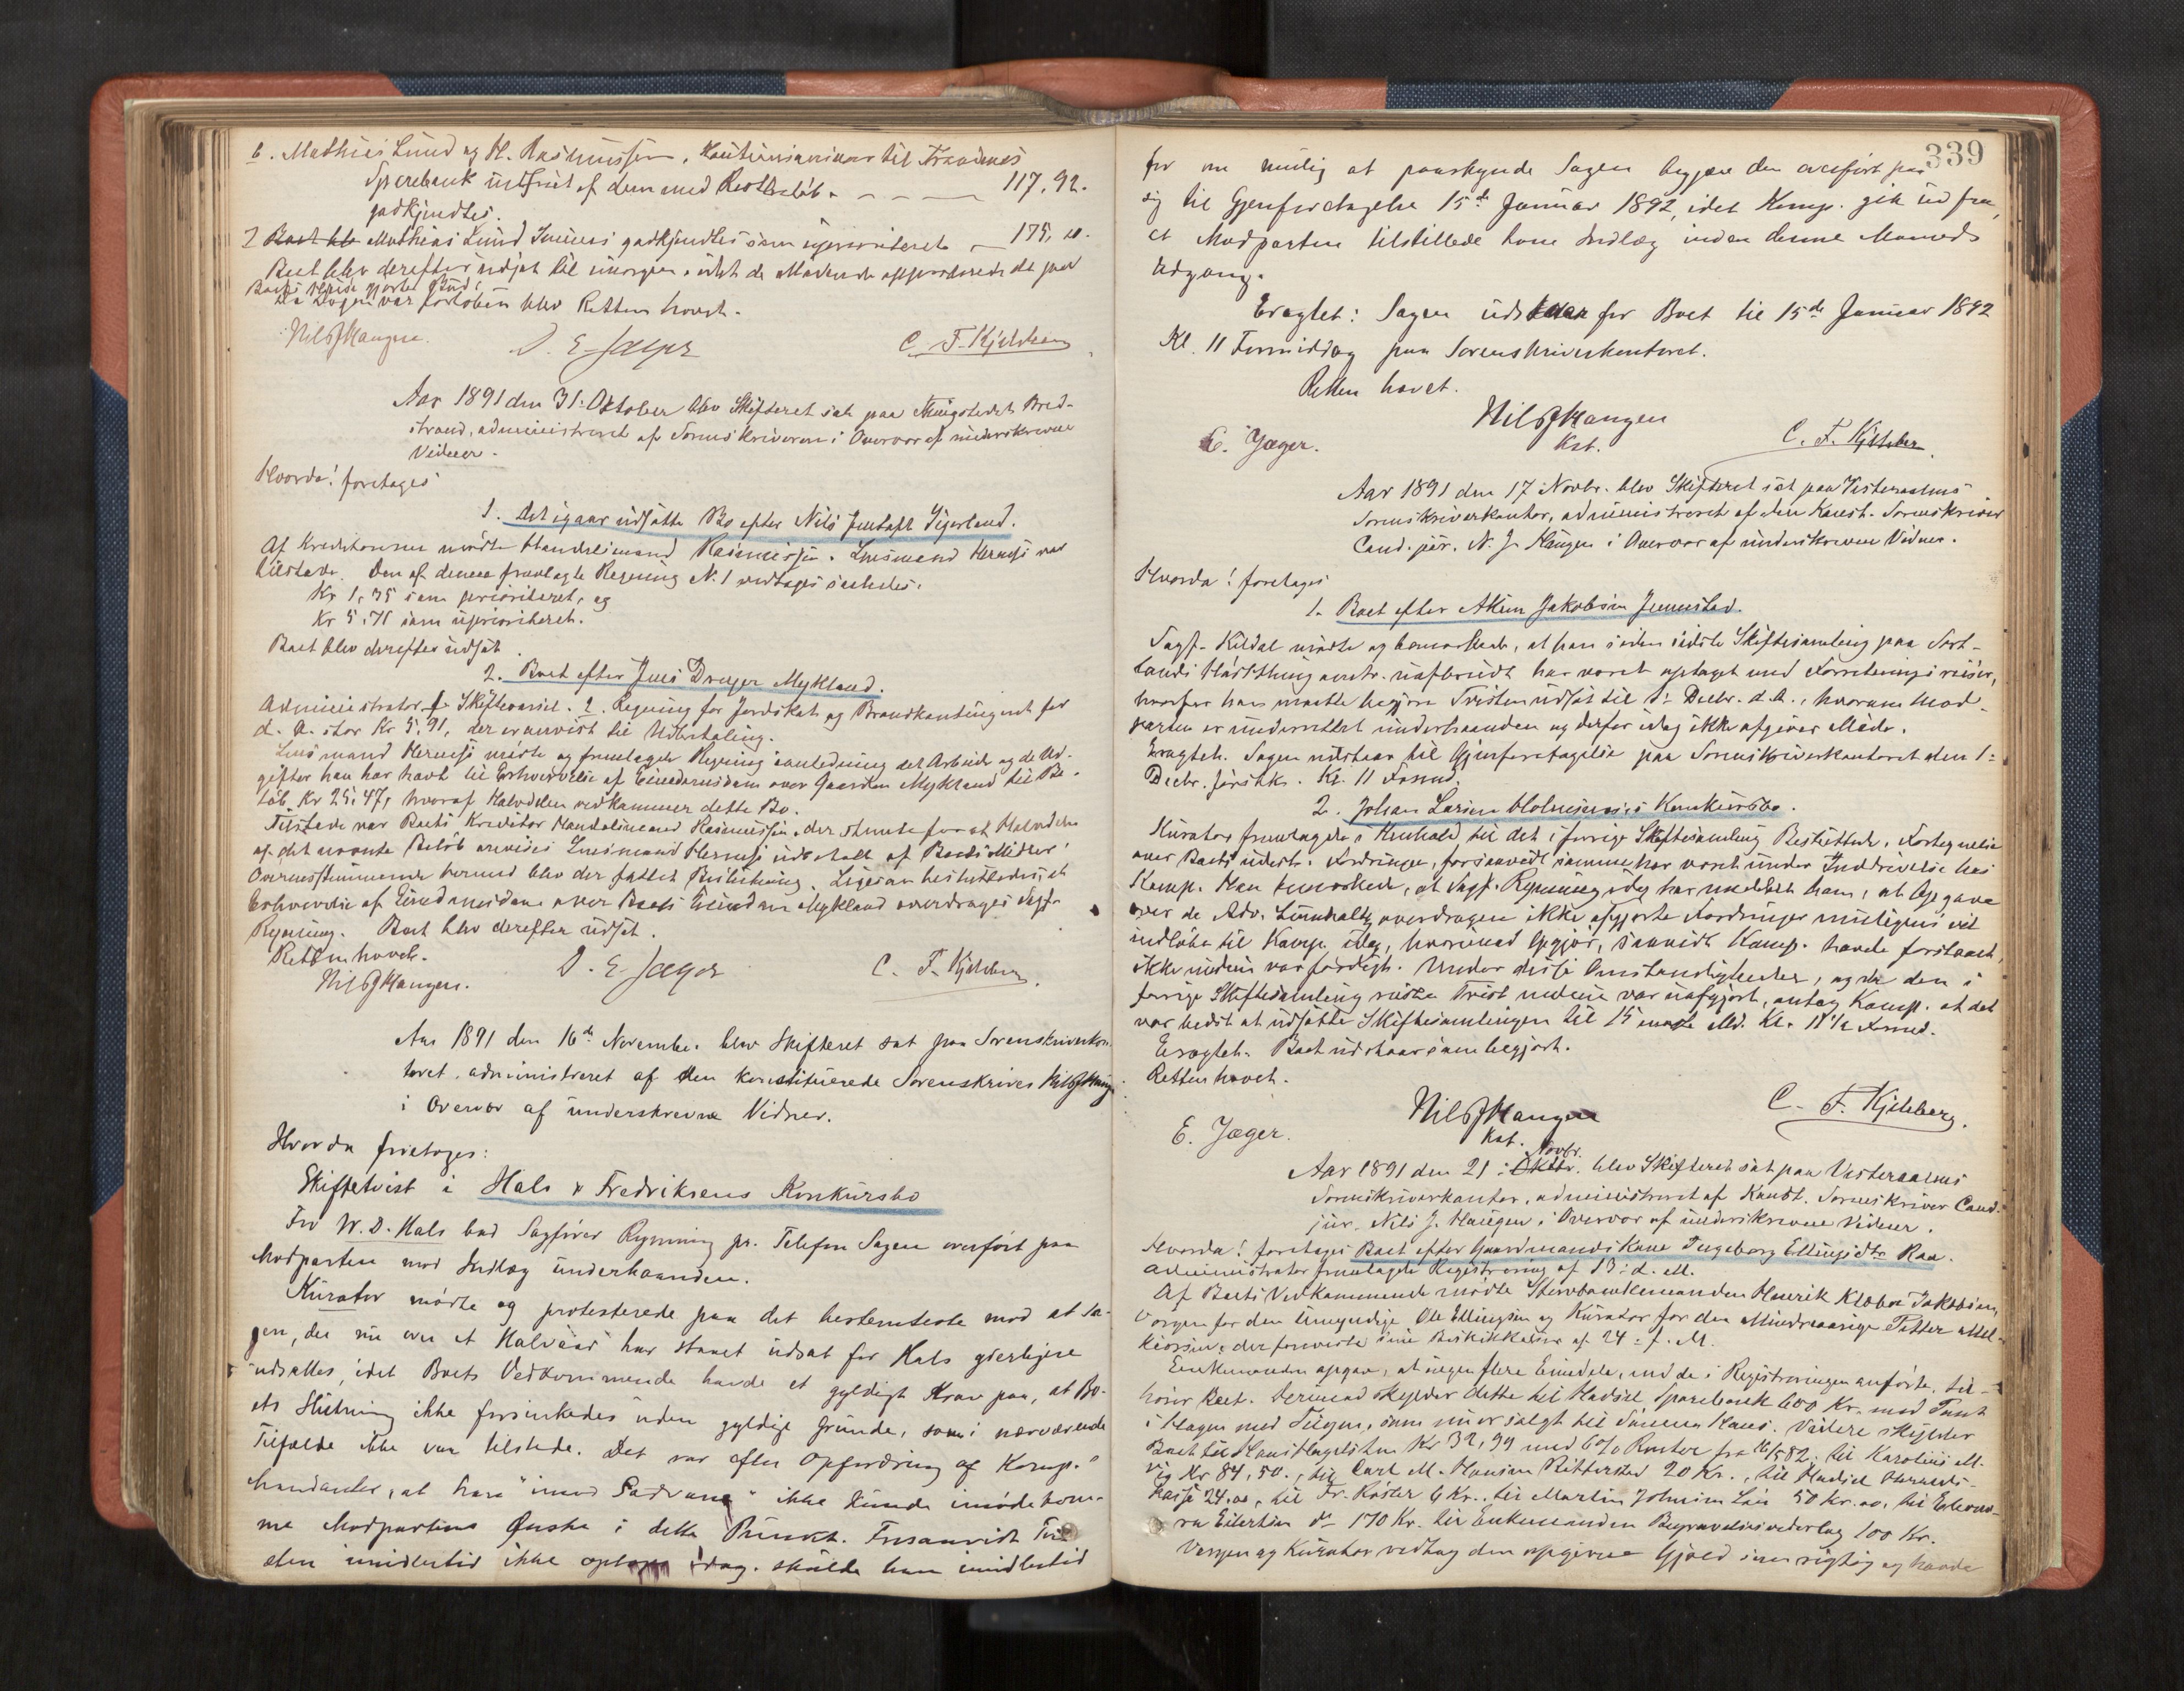 6. Mathias Lund og H. Rasmussen, Kautionsansvar til Trondenes
Sparebank indfriet af dem med Restbeløb. - - - - 117,92.
godkjendtes.
7 Boet blev Mathias Lund godkjendtes som uprioriteret - 175,00.
Boet blev derefter udsat til imorgen, idet de Mødende approberede det paa
Boets vegne gjorte Bud.
Da Dagen var forløben blev Retten hævet.
Nils J Haugen. D. E. Jæger C. F. Kjelsberg
Aar 1891 den 31. Oktober blev Skifteret sat paa Thingstedet Bred-
strand, administreret af Sorenskriveren i Overvær af underskrevne
Vidner.
Hvorda! foretoges
1. Det igaar udsatte Bo efter Nils Jentoft Sigerland.
Af Kreditorerne mødte Handelsmand Rasmussen. Lensmand Hernæs var
tilstede. Den af denne fremlagte Regning N. 1 vedtages saaledes:
Kr 1,35 som prioriteret, og
Kr 5,71 som uprioriteret.
Boet blev derefter udsat.
2. Boet efter Jens Dreyer Mykland.
Administrator f Skiftevæsenet. 2. Regning for Jordskat og Brandkontingent for
d. A. stor Kr 5,91, der er anvist til Udbetaling.
Lensmand Hernæs mødte og fremlagde Regning i anledning det Arbeide og de Ud-
gifter han har havt til Erhvervelse af Eiendomsdom over Gaarden Mykland til Be-
løb Kr 25,47, hvoraf Halvdelen vedkommer dette Bo.
Tilstede var Boets Kreditor Handelsmand Rasmussen, der stemte for at Halvdelen
af det nævnte Beløb anvises Lensmand Hernæs udbetalt af Boets Midler.
Overensstemmende hermed blev der fattet Beslutning. Ligesaa besluttedes, at
Erhvervelse af Eiendomsdom over Boets Eiendom Mykland overdrages Sagf.
Rynning. Boet blev derefter udsat.
Retten hævet.
Nils J Haugen. D. E. Jæger C. F. Kjelsberg.
Aar 1891 den 16de November blev Skifteret sat paa Sorenskriverkon-
toret, administreret af den konstituerede Sorenskriver Nils J Haugen
i Overvær af underskrevne Vidner.
Hvorda foretoges:
Skiftetvist i Hals & Fredriksens Konkursbo
For W. D. Hals bad Sagfører Rynning pr. Telefon Sagen overført paa
Modparten mod Indlæg underhaanden.
Kurator mødte og protesterede paa det bestemteste mod at Sa-
gen, der nu over et Halvaar har staaet udsat for Hals yderligere
udsattes, idet Boets Vedkommende havde et gyldigt Krav paa, at Bo-
ets Slutning ikke forsinkedes uden gyldige Grunde, som i nærværende
Tilfælde ikke var tilstede. Det var efter Opfordring af Komp.
Mandanter, at han "imod Sædvane" ikke kunde imødekom-
me Modpartens Ønske i dette Punkt. Forsaavidt Tvi-
sten imidlertid ikke optoges idag, skulde han imidlertid
339
for om mulig at paaskynde Sagen begjære den overført paa
sig til Gjenforetagelse 15de Januar 1892, idet Komp. gik ud fra,
at Modparten tilstillede ham Indlæg inden denne Maaneds
Udgang.
Eragtet: Sagen udstaar for Boet til 15de Januar 1892
Kl. 11 Formiddag paa Sorenskriverkontoret.
Retten hævet.
Nils J Haugen
E. Jæger. Kst. C. F. Kjelsberg.
Aar 1891 den 17 Novbr. blev Skifteret sat paa Vesteraalens
Sorenskriverkontor, administreret af den Konst. Sorenskriver
Cand. jur. N. J. Haugen i Overvær af underskrevne Vidner.
Hvorda! foretoges
1. Boet efter Aken Jakobsen Jennestad.
Sagf. Kildal mødte og bemærkede, at han siden sidste Skiftesamling paa Sort-
lands Høstthing omtr. uafbrudt har været optaget med Forretningsreiser,
hvorfor han maatte begjære Tvisten udsat til 1. Decbr. d. A., hvorom Mod-
parten er underrettet underhaanden og derfor idag ikke afgiver Møde.
Eragtet. Sagen udstaar til Gjenforetagelse paa Sorenskriverkontoret den 1.
Decbr. førstk. Kl. 11 Formd.
2. Johan Larsen Holmsnes's Konkursbo.
Kurator fremlagde i Henhold til det i forrige Skiftesamling Besluttede, Fortegnelse
over Boets udest. Fordringer, forsaavidt samme har været under Inddrivelse hos
Komp. Han bemærkede, at Sagf. Rynning idag har meddelt ham, at Opgave
over de Adv. Lumholtz overdragen ikke opgjorte Fordringer muligens vil
indløbe til Komp. idag, hvorimod Opgjør, saavidt Komp. havde forstaaet,
ikke endnu var færdigt. Under disse Omstændigheder, og da den i
forrige Skiftesamling reiste Tvist endnu var uafgjort, antog Komp. at det
var bedst at udsætte Skiftesamlingen til 15 næste Md. Kl. 11½ Formd.
Eragtet. Boet udstaar som begjært.
Retten hævet.
Nils J Haugen C. F. Kjelsberg.
E. Jæger. Kst.
Novbr.
Aar 1891 den 21: Oktbr. blev Skifteret sat paa Vesteraalens
Sorenskriverkontor, administreret af Konst. Sorenskriver Cand.
jur. Nils J. Haugen i Overvær af underskrevne Vidner.
Hvorda! foretoges Boet efter Gaardmandskone Ingeborg Ellingsdtr Raa.
Administrator fremlagde Registrering af 13: d. M.
Af Boets Vedkommende mødte Stervboenkemanden Henrik Klæboe Jakobsen,
Værgen for den Umyndige Ole Ellingsen og Kurator for den Mindreaarige Petter Mel-
kiorsen, der foreviste sine Beskikkelser af 24: f. M.
Enkemanden opgav, at ingen flere Eiendele, end de i Registreringen anførte, til-
hører Boet. Derimod skylder dette til Hadsel Sparebank 600 Kr. mod Pant
i Hagen med Tilegn, som nu er solgt til Sønnen Hans. Videre skylder
Boet til Hans Hagelsten Kr 32,94 med 6% Renter fra 16/5 82. til Karolius M.
Vig Kr 84,50., til Carl M. Hansen Rittersted 20 Kr., til Hadsel Herreds-
kasse 24,00, til Fr. Köster 4 Kr., til Martin Johnsen Lær 50 Kr.00, til Eleono-
ra Eilertsen do 170 Kr. til Enkemanden Begravelsesvederlag 100 Kr.
Værgen og Kurator vedtog den opgivne Gjæld som rigtig og havde